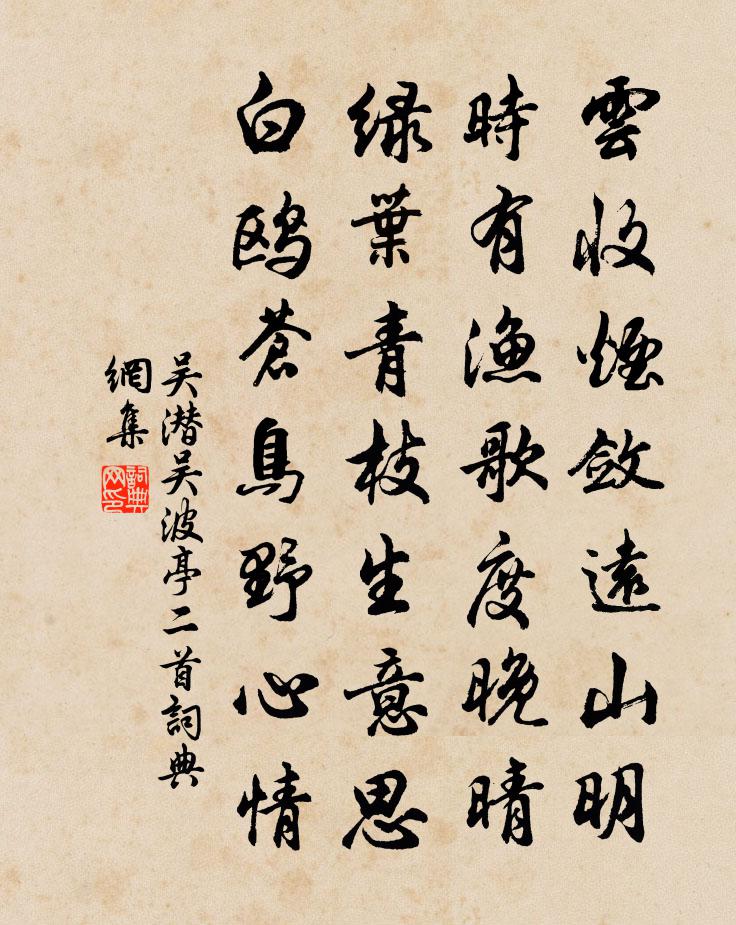 雲收煙斂遠山明
時有漁歌度晚晴
緑葉青枝生意思
白鸥蒼鳥野心情
吴潜吴波亭二首詞典
網集
詞典
网印